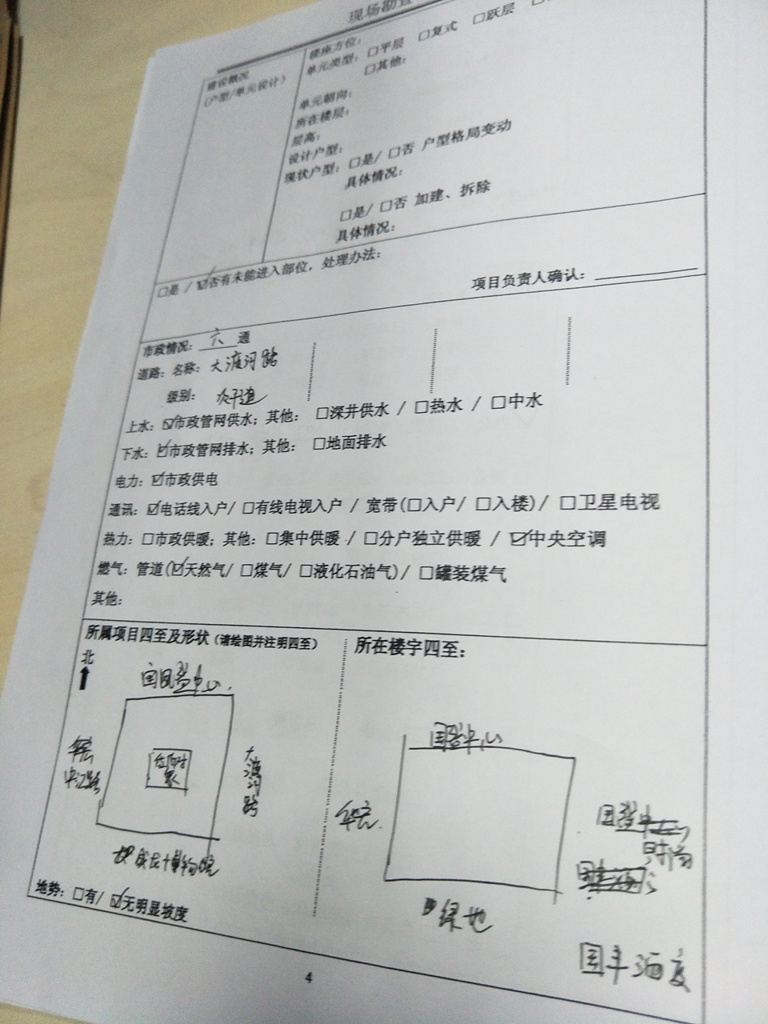 现场勘查
建设概况
(户型/单元设计)
楼座方位：
单元类型：□平层 □复式 □跃层
□其他：
单元朝向：
所在楼层：
层高：
设计户型：
现状户型：□是/ □否 户型格局变动
具体情况：
□是/ □否 加建、拆除
具体情况：
□是 / ☑否有未能进入部位，处理办法：
项目负责人确认：
市政情况：六通
道路：名称：大渡河路
级别：次干道
上水：☑市政管网供水；其他：□深井供水 / □热水 / □中水
下水：☑市政管网排水；其他：□地面排水
电力：☑市政供电
通讯：☑电话线入户/ □有线电视入户 / 宽带(□入户/ □入楼)/ □卫星电视
热力：□市政供暖；其他：□集中供暖 / □分户独立供暖 / ☑中央空调
燃气：管道(☑天然气/ □煤气/ □液化石油气)/ □罐装煤气
其他：
所属项目四至及形状（请绘图并注明四至）
北
国盛中心
大渡河路
地势：□有/ ☑无明显坡度
所在楼宇四至：
国盛中心
绿地
国丰酒店
4